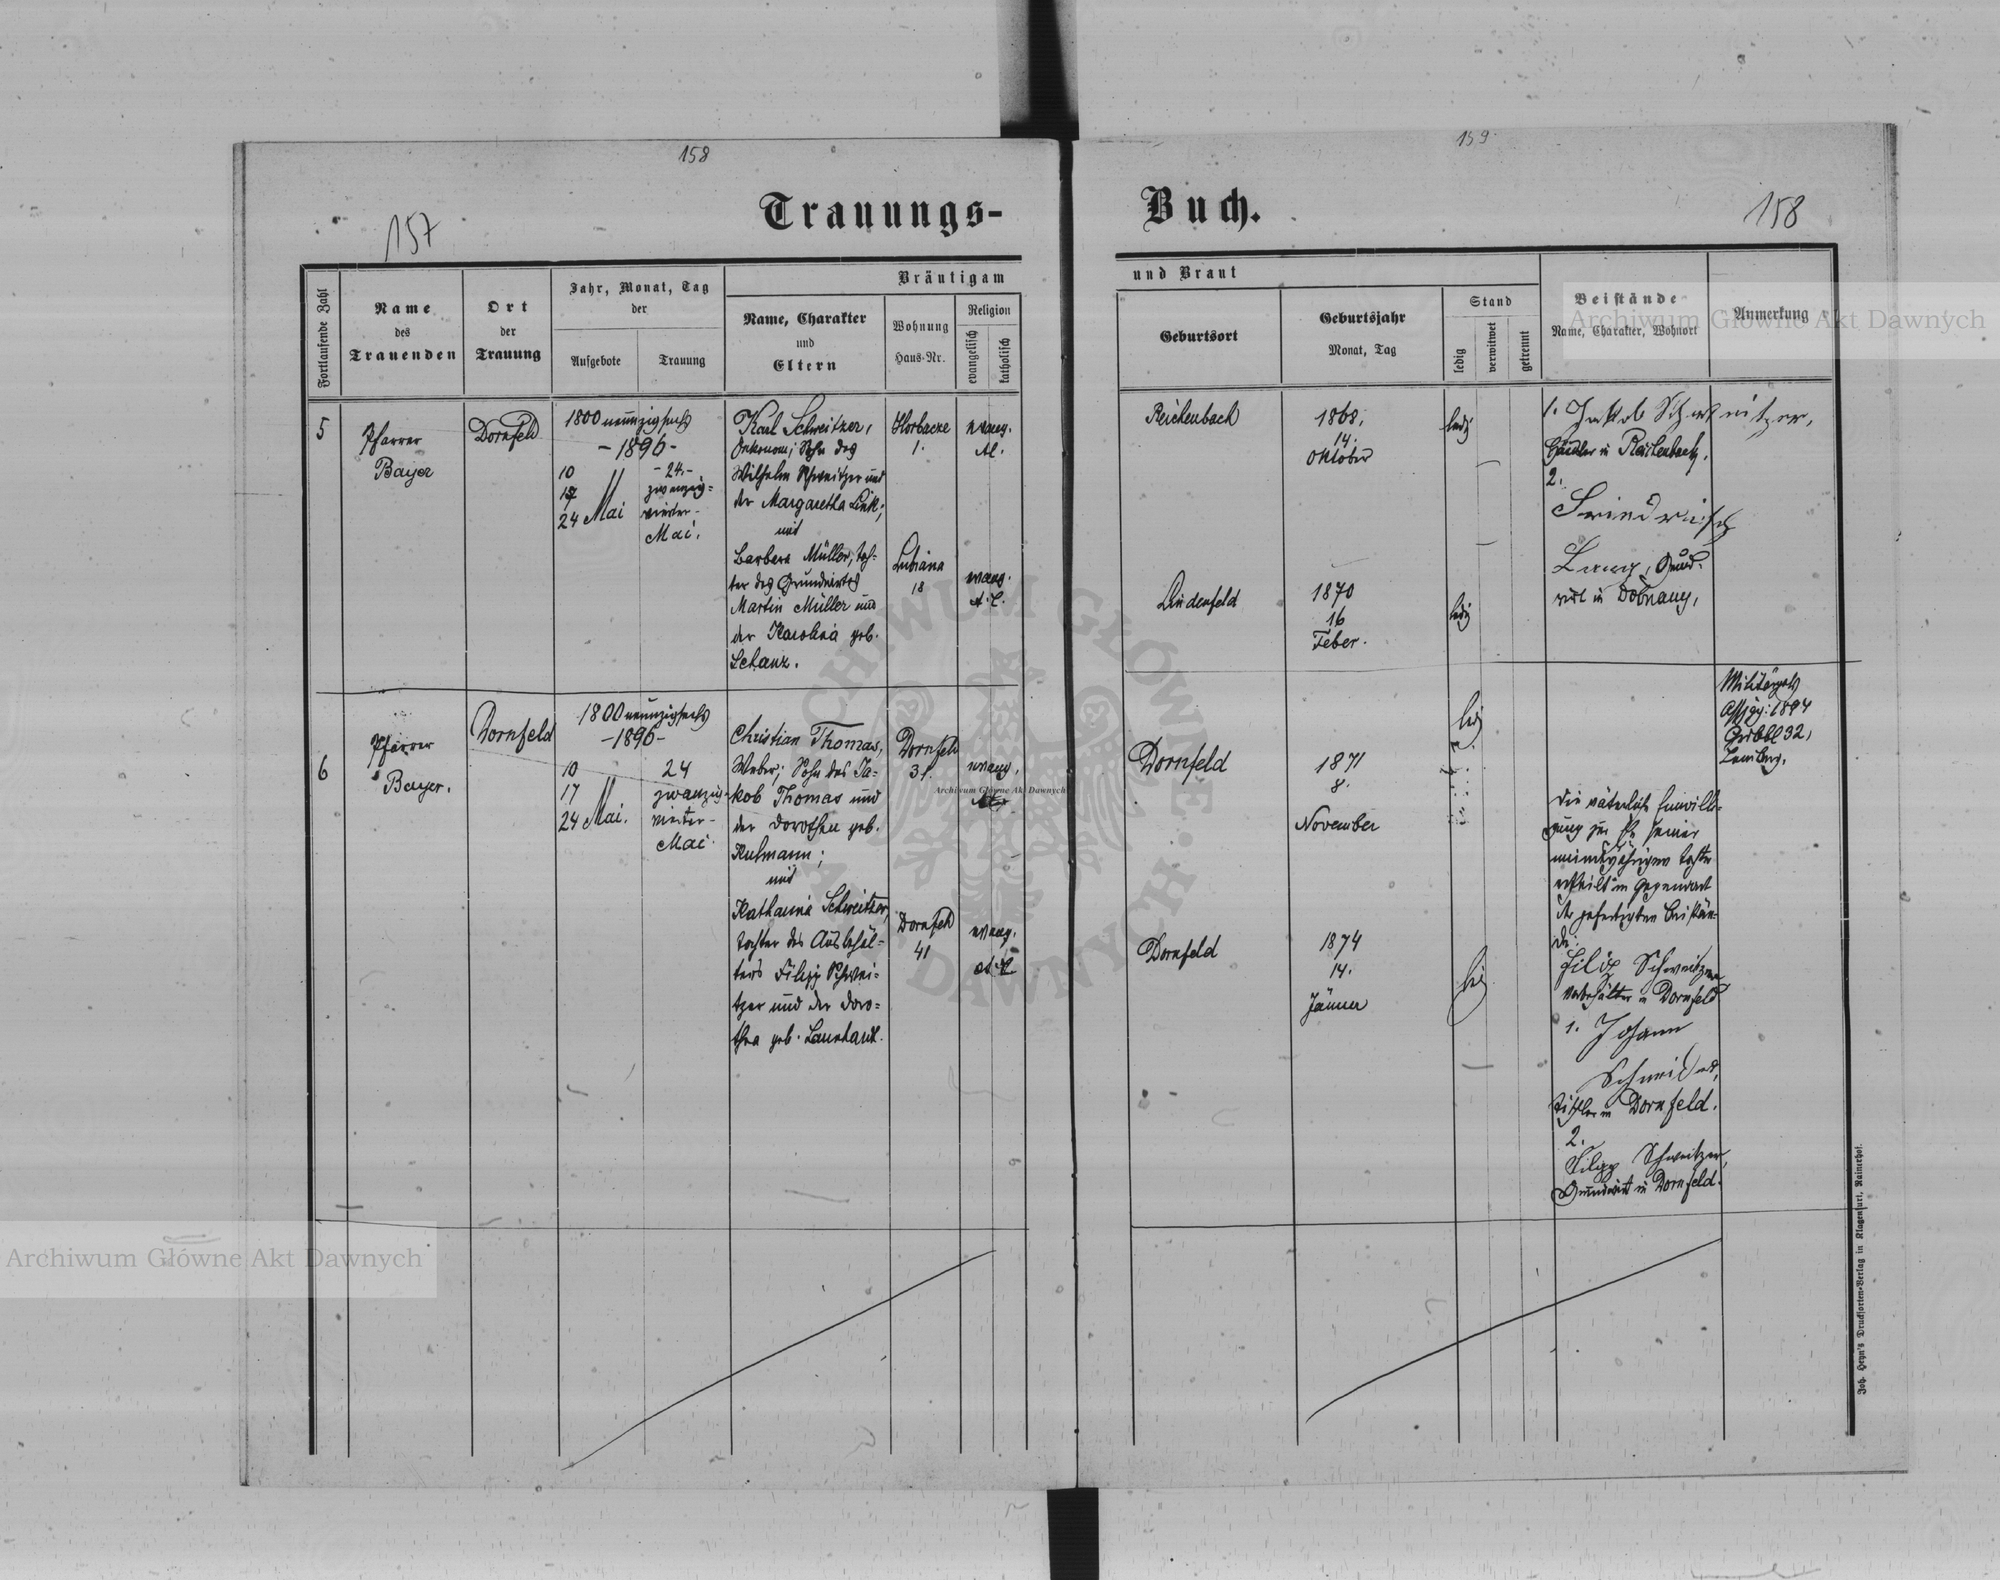 158
159
Trauungs-
Buch.
157
158
Fortlaufende Zahl
Name
des
Trauenden
Ort
der
Trauung
Jahr, Monat, Tag
der
Aufgebote
Trauung
Bräutigam
Name, Charakter
und
Eltern
Wohnung
Haus-Nr.
Religion
evangelisch
katholisch
und Braut
Geburtsort
Geburtsjahr
Monat, Tag
Stand
ledig
verwitwet
getrennt
Beistände
Name, Charakter, Wohnort
Anmerkung
5
Pfarrer
Bayer
Dornfeld
1800 neunzigsechs
-1896-
10
17
24 Mai
-24-
zwanzig-
vierter-
Mai.
Karl Schweitzer,
Oekonom; Sohn des
Wilhelm Schweitzer und
der Margaretha Link;
mit
Barbara Müller, Toch-
ter des Grundwirtes
Martin Müller und
der Karolina geb.
Schanz.
Horbacze
1.
Lubiana
18
evang.
evang.
A. C.
Reichenbach
Lindenfeld
1868.
14.
Oktober
1870
16
Feber.
ledig
ledig
1. Jakob Schweitzer,
in Reichenbach.
2.
Friedrich
Lang, Grund-
wirt in
6
Pfarrer
Bayer.
Dornfeld
1800 neunzigsechs
-1896-
10
17
24 Mai.
24
zwanzig-
vierter-
Mai.
Christian Thomas,
Weber; Sohn des Ja-
kob Thomas und
der Dorothea geb.
Kulmann;
mit
Katharina Schweitzer,
Tochter des Ausbehäl-
ters Filipp Schwei-
tzer und der Doro-
thea geb. Launhardt.
Dornfeld
31.
Dornfeld
41
evang.
evang.
A. C.
Dornfeld
Dornfeld
1871
8.
November
1874
14.
Jänner
Die väterliche Einwilli-
gung zur Ehe seiner
minderjährigen Tochter
ertheilt in Gegenwart
der gefertigten Beistän-
de:
Filip Schweitzer
in Dornfeld
1. Johann
Schneider,
Tischler in Dornfeld.
2.
Filipp Schweitzer,
Grundwirt in Dornfeld.
1894
32,
Lemberg.
Joh. Heyn's Drucksorten-Verlag in Klagenfurt, Rainerhof.
Archiwum Główne Akt Dawnych
Archiwum Główne Akt Dawnych
Archiwum Główne Akt Dawnych
ARCHIWUM GŁÓWNE AKT DAWNYCH